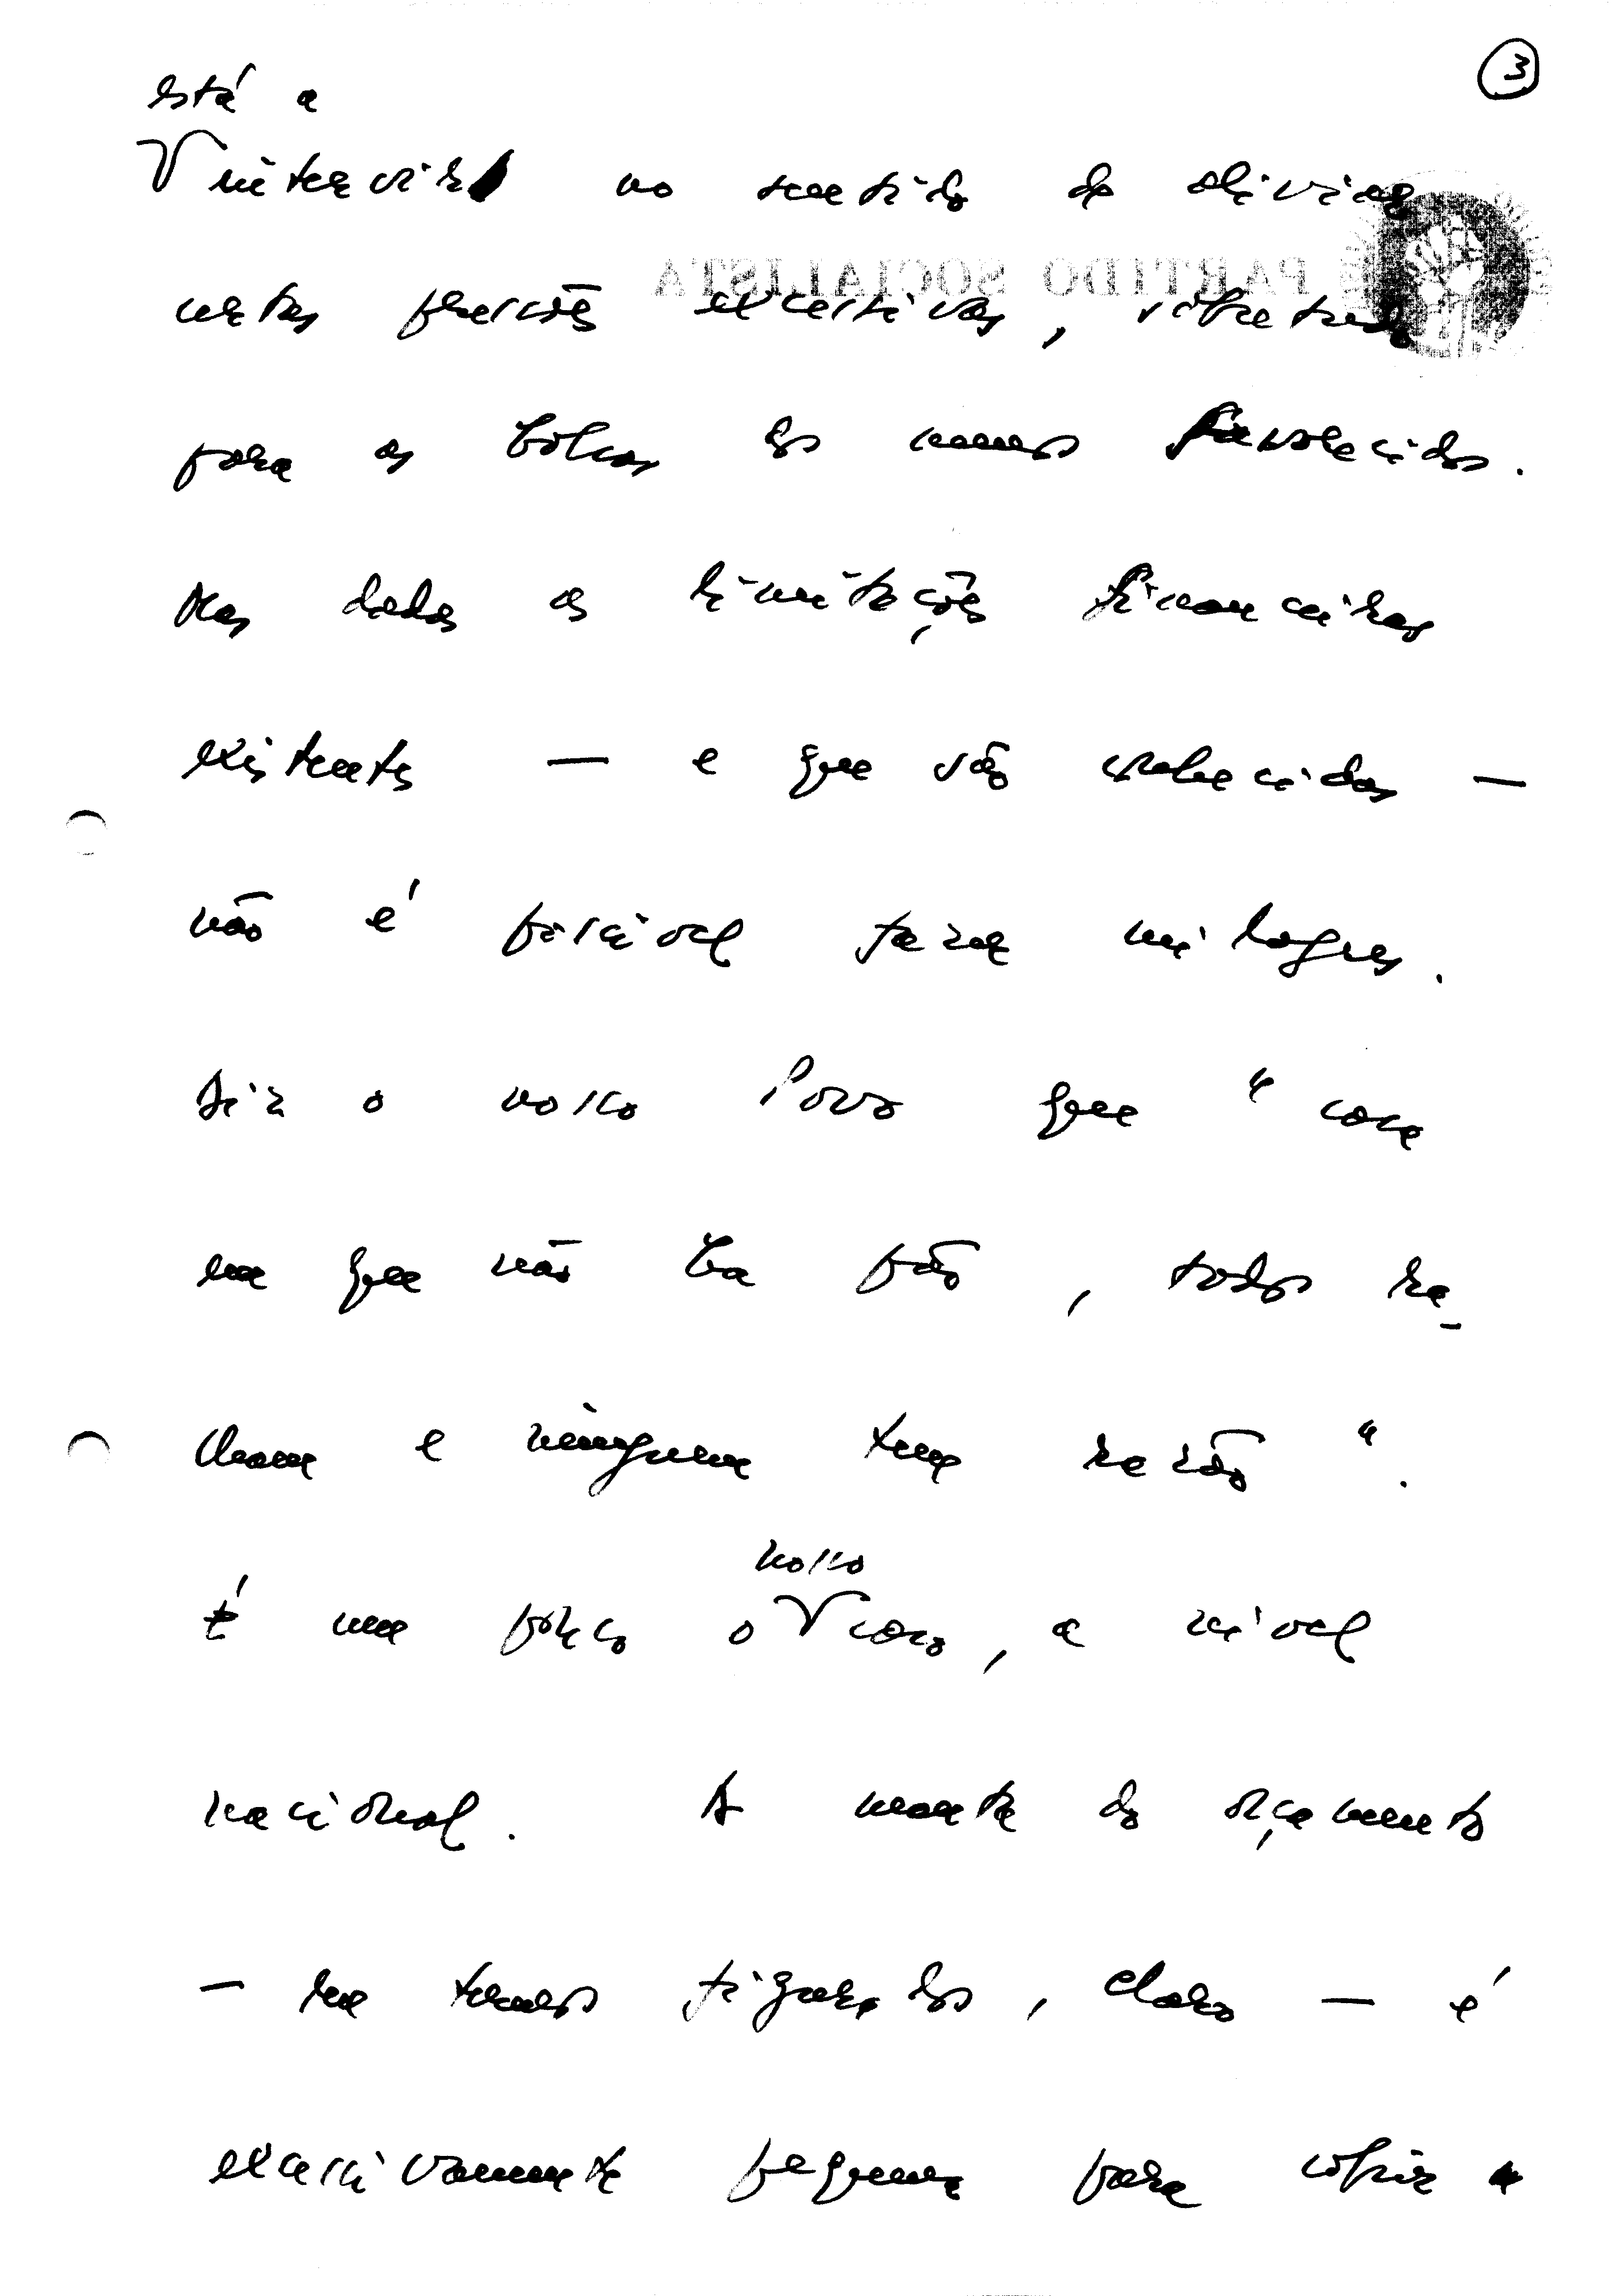 3
está a
intervir no sentido de aliviar
PARTIDO SOCIALISTA
certas pressões excessivas, sobretudo
para as bolsas dos menos favorecidos.
Mas dadas as limitações financeiras
existentes — e que são conhecidas —
não é possível fazer milagres.
Diz o nosso Povo que "casa
em que não há pão, todos ra-
lham e ninguém tem razão".
nosso
É um pouco o caso, a nível
nacional. A manta do orçamento
— em termos figurados, claro — é
excessivamente pequena para cobrir a